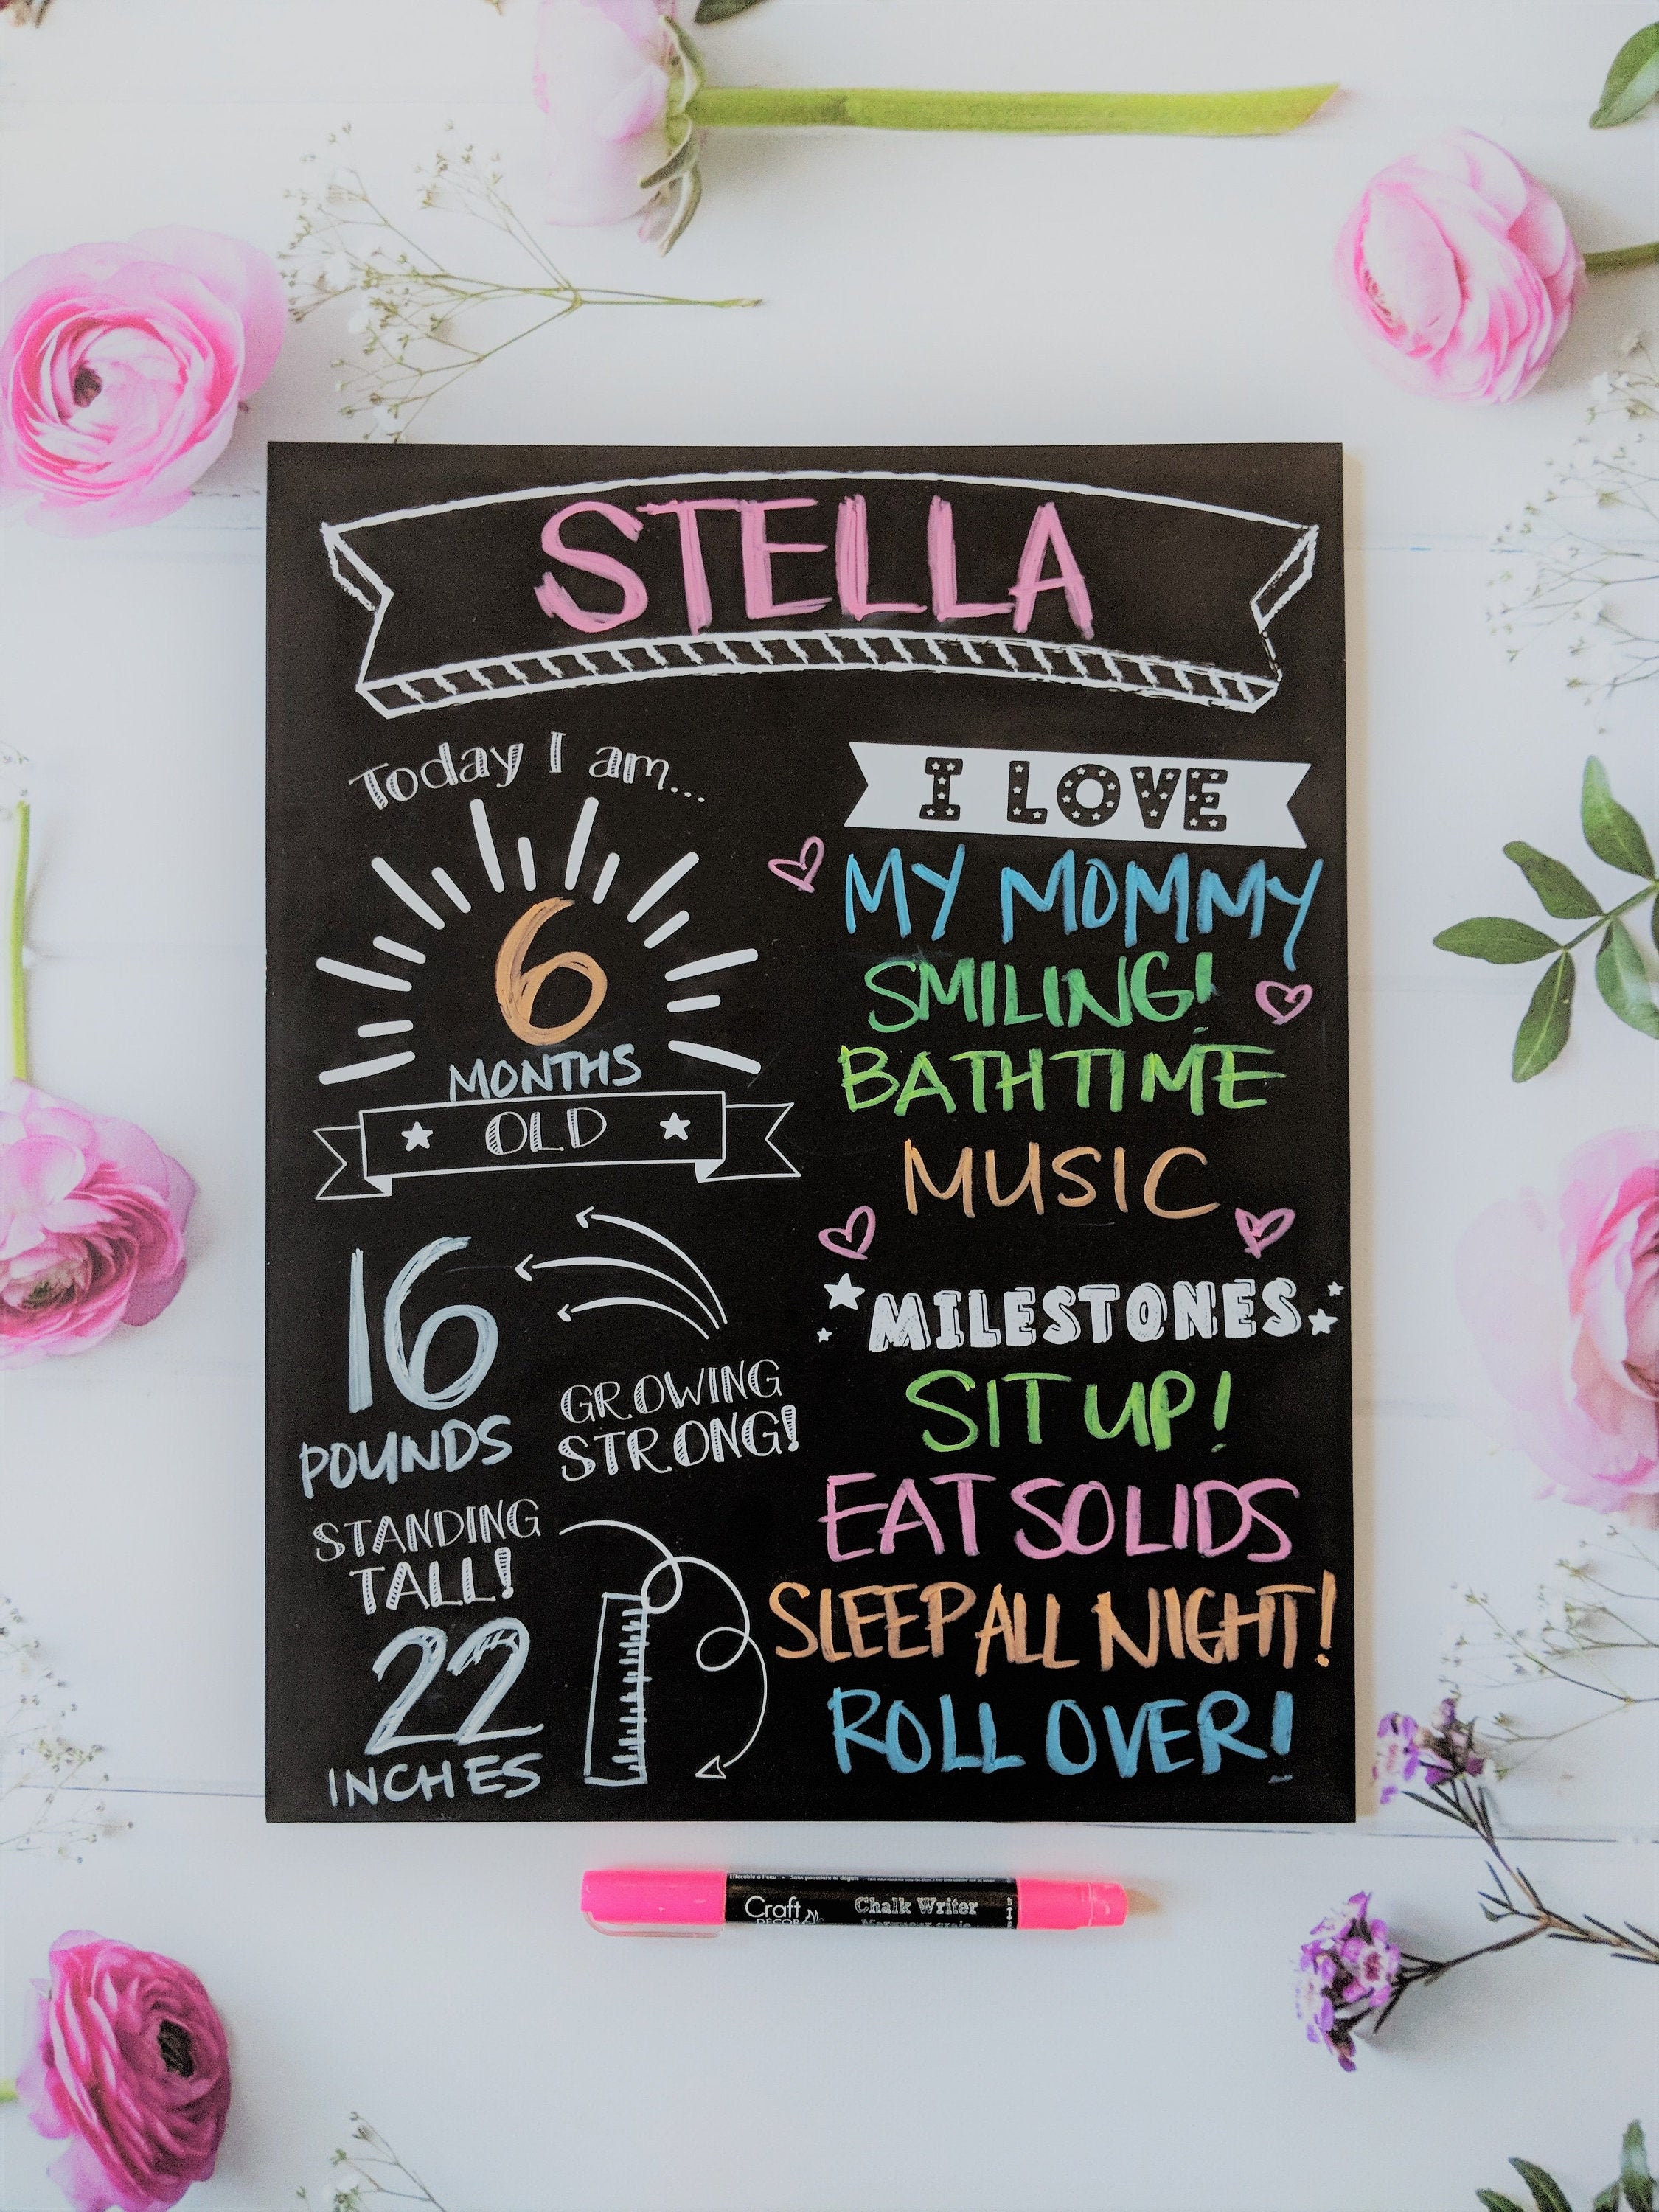 STELLA
Today I am...
6
MONTHS
OLD
16
POUNDS
GROWING
STRONG!
STANDING
TALL!
22
INCHES
I LOVE
MY MOMMY
SMILING!
BATHTIME
MUSIC
MILESTONES
SIT UP!
EAT SOLIDS
SLEEP ALL NIGHT!
ROLL OVER!
Craft
DECOR
Chalk Writer